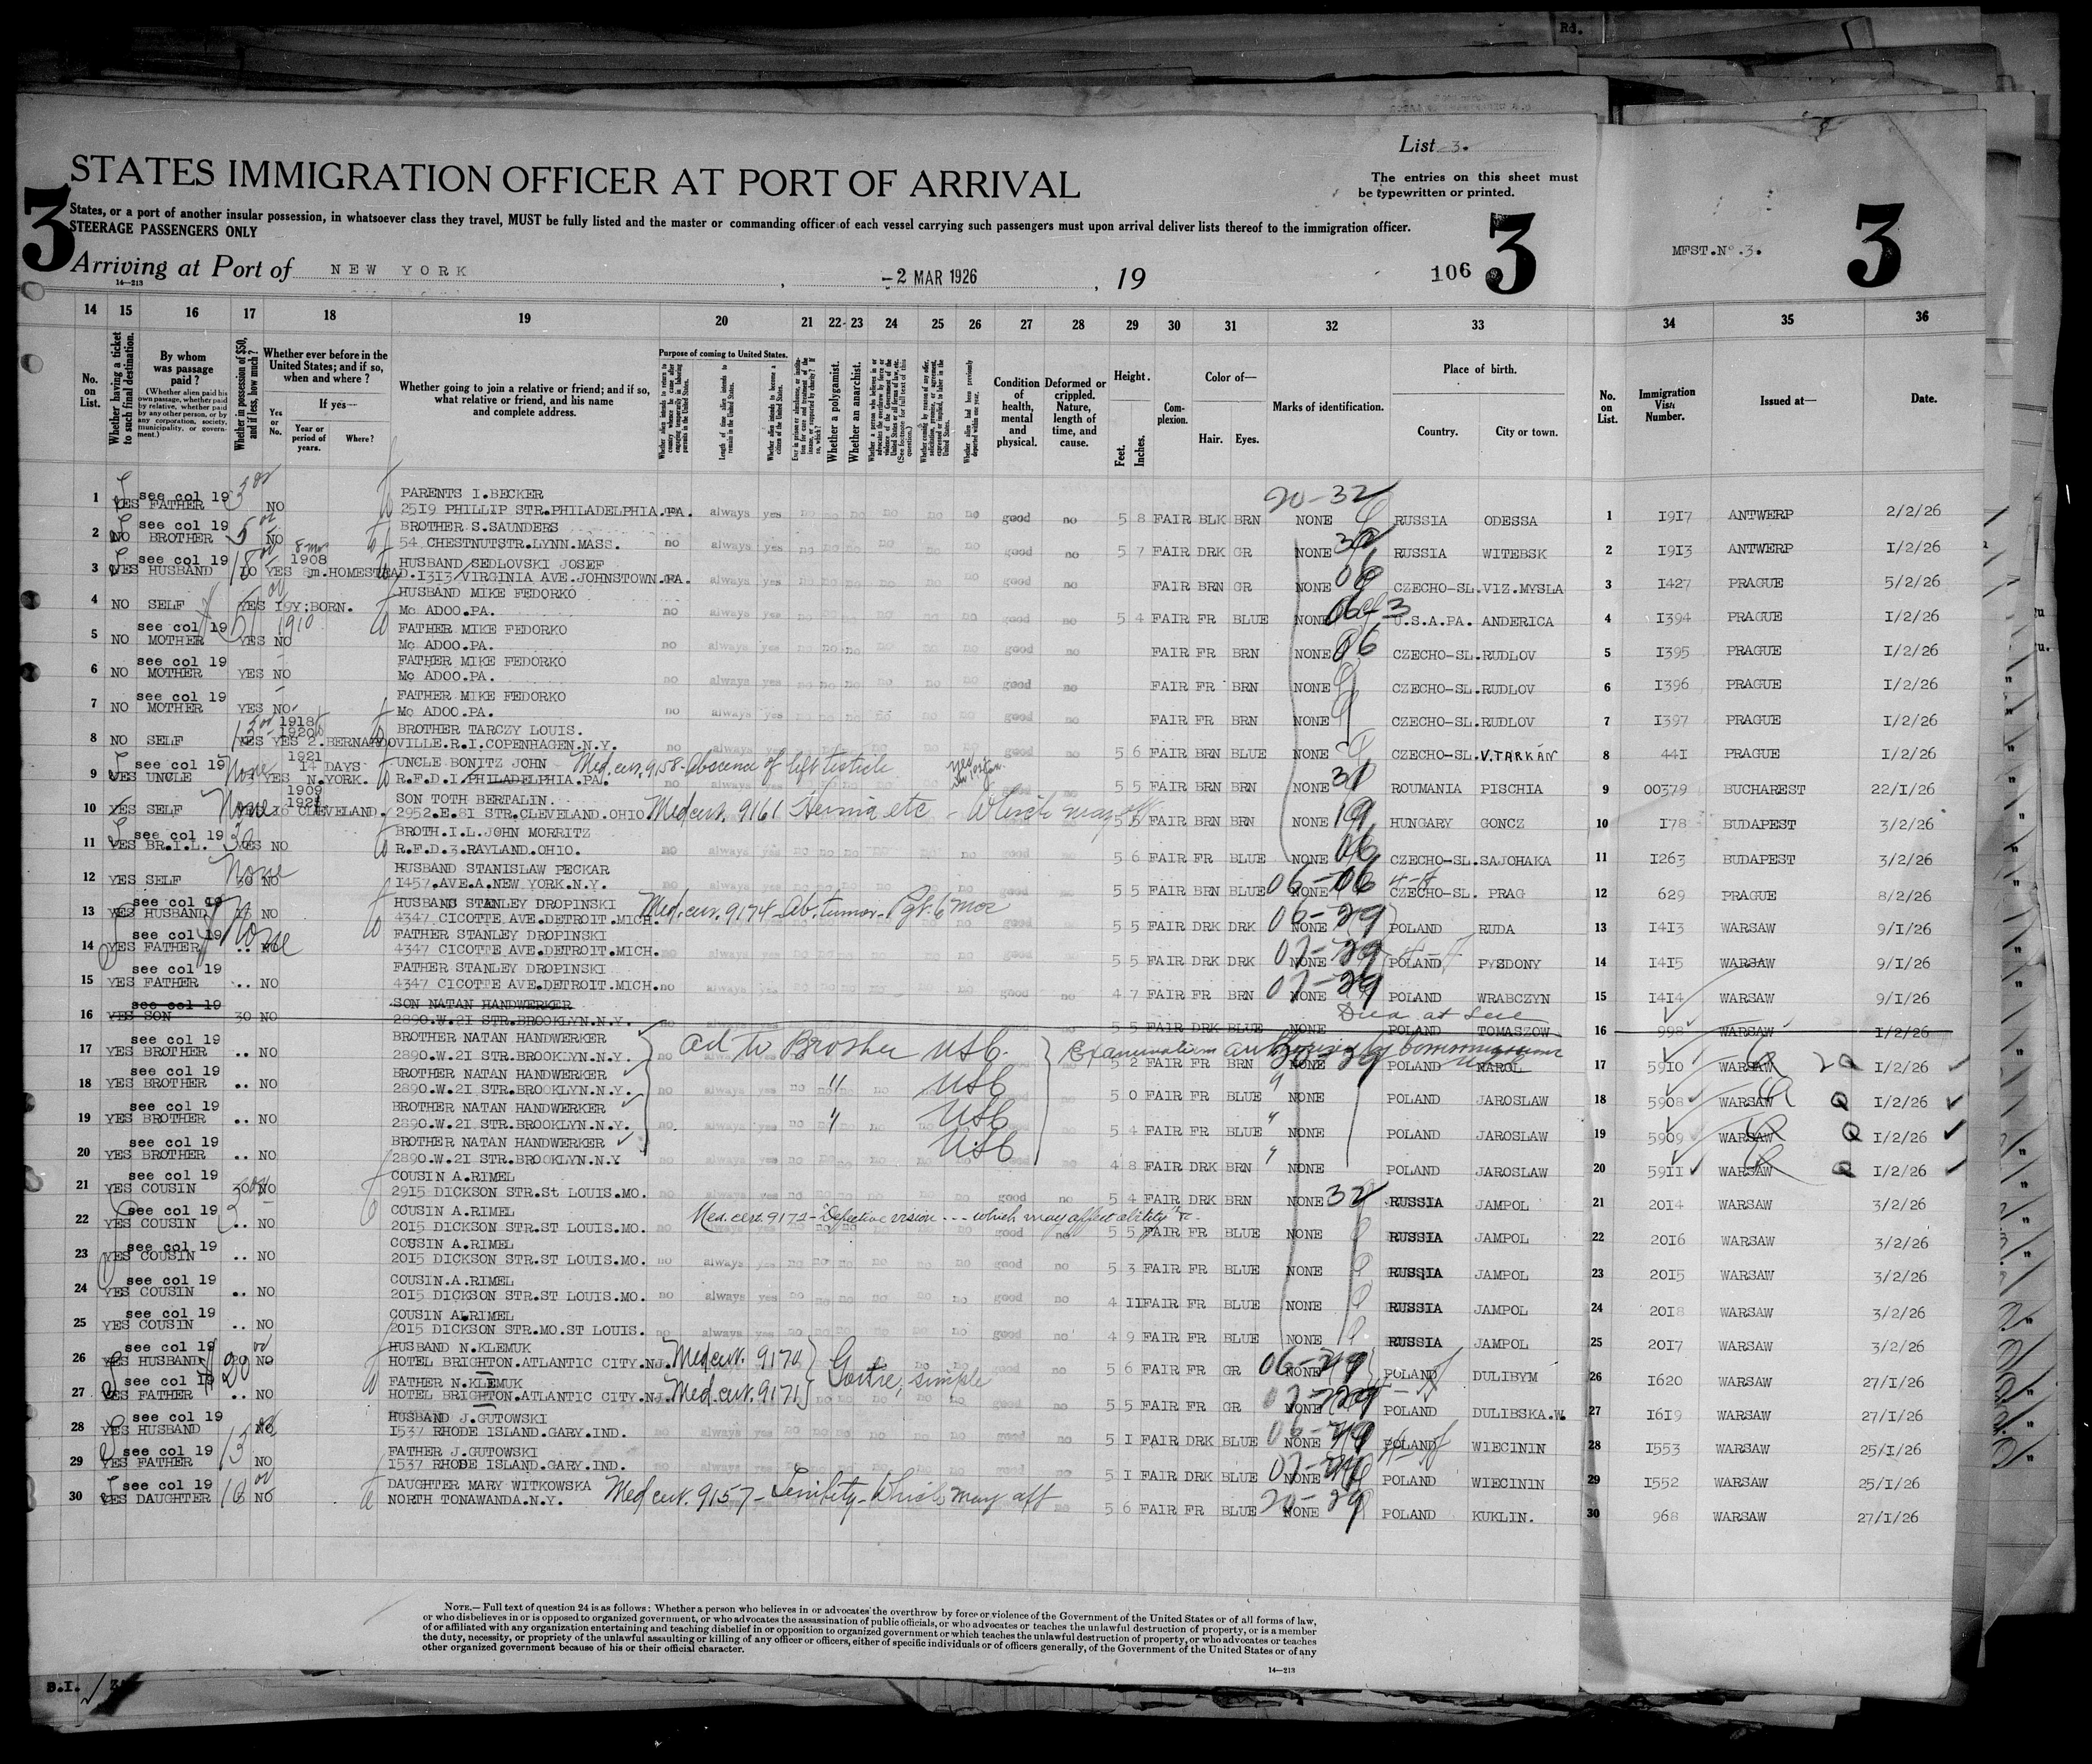 Rd.
List 3.
STATES IMMIGRATION OFFICER AT PORT OF ARRIVAL
The entries on this sheet must
be typewritten or printed.
States, or a port of another insular possession, in whatsoever class they travel, MUST be fully listed and the master or commanding officer of each vessel carrying such passengers must upon arrival deliver lists thereof to the immigration officer.
STEERAGE PASSENGERS ONLY
3 3 3
MFST.No.3.
Arriving at Port of NEW YORK , -2 MAR 1926 , 19 106
14—213
14 15 16 17 18 19 20 21 22 23 24 25 26 27 28 29 30 31 32 33 34 35 36
No. on List.
Whether having a ticket to such final destination.
By whom was passage paid?
(Whether alien paid his own passage, whether paid by relative, whether paid by any other person, or by any corporation, society, municipality, or government.)
Whether in possession of $50, and if less, how much?
Whether ever before in the United States; and if so, when and where?
Yes or No.
If yes—
Year or period of years.
Where?
Whether going to join a relative or friend; and if so, what relative or friend, and his name and complete address.
Purpose of coming to United States.
Length of time alien intends to remain in the United States.
Whether alien intends to become a citizen of the United States.
Whether a polygamist.
Whether an anarchist.
Condition of health, mental and physical.
Deformed or crippled. Nature, length of time, and cause.
Height.
Feet. Inches.
Complexion.
Color of—
Hair. Eyes.
Marks of identification.
Place of birth.
Country. City or town.
No. on List.
Immigration Visa Number.
Issued at—
Date.
1 YES see col 19 FATHER NO PARENTS I.BECKER 2519 PHILLIP STR.PHILADELPHIA.PA. always yes no no no no no no good no 5 8 FAIR BLK BRN NONE 20-32 RUSSIA ODESSA 1 1917 ANTWERP 2/2/26
2 NO see col 19 BROTHER 5 NO BROTHER S.SAUNDERS 54 CHESTNUTSTR.LYNN.MASS. no always yes no no no no no no good no 5 7 FAIR DRK GR NONE 32 RUSSIA WITEBSK 2 1913 ANTWERP 1/2/26
3 YES see col 19 HUSBAND YES 1908 8m.HOMESTEAD. HUSBAND SEDLOVSKI JOSEF 1313 VIRGINIA AVE.JOHNSTOWN.PA. always yes no no no no no no good no FAIR BRN GR NONE 06 CZECHO-SL. VIZ.MYSLA 3 1427 PRAGUE 5/2/26
4 NO SELF YES 19Y;BORN. 1910 HUSBAND MIKE FEDORKO Mc ADOO.PA. no always yes no no no no no no good no 5 4 FAIR FR BLUE NONE U.S.A.PA. ANDERICA 4 1394 PRAGUE 1/2/26
5 NO see col 19 MOTHER YES NO FATHER MIKE FEDORKO Mc ADOO.PA. no always yes no no no no no no good no FAIR FR BRN NONE 06 CZECHO-SL. RUDLOV 5 1395 PRAGUE 1/2/26
6 NO see col 19 MOTHER YES NO FATHER MIKE FEDORKO Mc ADOO.PA. no always yes no no no no no no good no FAIR FR BRN NONE CZECHO-SL. RUDLOV 6 1396 PRAGUE 1/2/26
7 NO see col 19 MOTHER YES NO FATHER MIKE FEDORKO Mc ADOO.PA. no always yes no no no no no no good no FAIR FR BRN NONE CZECHO-SL. RUDLOV 7 1397 PRAGUE 1/2/26
8 NO SELF YES YES 1918 1920 2.BERNARDOVILLE.R.I.COPENHAGEN.N.Y. BROTHER TARCZY LOUIS. no always yes no no no no no no good no 5 6 FAIR BRN BLUE NONE CZECHO-SL. V.TARKÁN 8 441 PRAGUE 1/2/26
9 YES see col 19 UNCLE None YES 1921 14 DAYS N.YORK. UNCLE BONITZ JOHN R.F.D.I PHILADELPHIA.PA. Med. cert. 9158 Abscence of left testicle yes 5 5 FAIR BRN BRN NONE 31 ROUMANIA PISCHIA 9 00379 BUCHAREST 22/1/26
10 YES SELF None 1909 CLEVELAND. SON TOTH BERTALIN. 2952.E.81 STR.CLEVELAND.OHIO Med cert. 9161 Hernia etc - Which may aff 5 5 FAIR BRN BRN NONE 19 HUNGARY GONCZ 10 178 BUDAPEST 3/2/26
11 YES see col 19 BR.I.L. YES NO BROTH.I.L.JOHN MORRITZ R.F.D.3.RAYLAND.OHIO. no always yes no no no no no no good no 5 6 FAIR FR BLUE NONE 06 CZECHO-SL. SAJOHAKA 11 1263 BUDAPEST 3/2/26
12 YES SELF None 30 NO HUSBAND STANISLAW PECKAR 1457.AVE.A.NEW YORK.N.Y. no always yes no no no no no no good no 5 5 FAIR BRN BLUE NONE 06-06 CZECHO-SL. PRAG 12 629 PRAGUE 8/2/26
13 YES see col 19 HUSBAND NO HUSBAND STANLEY DROPINSKI 4347 CICOTTE AVE.DETROIT.MICH. Med. cert. 9174 - Ab. tumor - Pgt. 6 mos 5 5 FAIR DRK DRK NONE 06-29 POLAND RUDA 13 1413 WARSAW 9/1/26
14 YES see col 19 FATHER None .. NO FATHER STANLEY DROPINSKI 4347 CICOTTE AVE.DETROIT.MICH. no always yes no no no no no no good no 5 5 FAIR DRK DRK NONE 07-29 POLAND PYSDONY 14 1415 WARSAW 9/1/26
15 YES see col 19 FATHER .. NO FATHER STANLEY DROPINSKI 4347 CICOTTE AVE.DETROIT.MICH. no always yes no no no no no no good no 4 7 FAIR FR BRN NONE 07-29 POLAND WRABCZYN 15 1414 WARSAW 9/1/26
16 YES see col 19 SON 30 NO SON NATAN HANDWERKER 2890.W.21 STR.BROOKLYN.N.Y. 5 5 FAIR DRK BLUE NONE Died at sea POLAND TOMASZOW 16 998 WARSAW 1/2/26
17 YES see col 19 BROTHER .. NO BROTHER NATAN HANDWERKER 2890.W.21 STR.BROOKLYN.N.Y. Ad to Brother USC. Examination 5 2 FAIR FR BRN NONE 29 POLAND NAROL 17 5910 WARSAW 1/2/26
18 YES see col 19 BROTHER .. NO BROTHER NATAN HANDWERKER 2890.W.21 STR.BROOKLYN.N.Y. no always yes no no " no USC 5 0 FAIR FR BLUE NONE " POLAND JAROSLAW 18 5908 WARSAW 1/2/26
19 YES see col 19 BROTHER .. NO BROTHER NATAN HANDWERKER 2890.W.21 STR.BROOKLYN.N.Y. no always yes no " USC 5 4 FAIR FR BLUE NONE " POLAND JAROSLAW 19 5909 WARSAW 1/2/26
20 YES see col 19 BROTHER .. NO BROTHER NATAN HANDWERKER 2890.W.21 STR.BROOKLYN.N.Y no always yes no USC 4 8 FAIR DRK BRN NONE " POLAND JAROSLAW 20 5911 WARSAW 1/2/26
21 YES see col 19 COUSIN NO COUSIN A.RIMEL 2915 DICKSON STR.St LOUIS.MO. no always yes no no no no no no good no 5 4 FAIR DRK BRN NONE 32 RUSSIA JAMPOL 21 2014 WARSAW 3/2/26
22 YES see col 19 COUSIN .. NO COUSIN A.RIMEL 2015 DICKSON STR.ST LOUIS.MO. Med. cert. 9172 - "Defective vision - - - which may affect ability" etc. 5 5 FAIR FR BLUE NONE RUSSIA JAMPOL 22 2016 WARSAW 3/2/26
23 YES see col 19 COUSIN .. NO COUSIN A.RIMEL 2015 DICKSON STR.ST LOUIS.MO. no always yes no no no no no no good no 5 3 FAIR FR BLUE NONE RUSSIA JAMPOL 23 2015 WARSAW 3/2/26
24 YES see col 19 COUSIN .. NO COUSIN.A.RIMEL 2015 DICKSON STR.ST LOUIS.MO. no always yes no no no no no no good no 4 11 FAIR FR BLUE NONE RUSSIA JAMPOL 24 2018 WARSAW 3/2/26
25 YES see col 19 COUSIN .. NO COUSIN A.RIMEL 2015 DICKSON STR.MO.ST LOUIS. no always yes no no no no no no good no 4 9 FAIR FR BLUE NONE RUSSIA JAMPOL 25 2017 WARSAW 3/2/26
26 YES see col 19 HUSBAND 20 NO HUSBAND N.KLEMUK HOTEL BRIGHTON.ATLANTIC CITY.NJ. Med cert. 9170 Goitre, simple 5 6 FAIR FR GR NONE 06-29 POLAND DULIBYM 26 1620 WARSAW 27/1/26
27 YES see col 19 FATHER .. NO FATHER N.KLEMUK HOTEL BRIGHTON.ATLANTIC CITY.NJ. Med. cert. 9171 5 5 FAIR FR GR NONE 07-29 POLAND DULIBSKA.W. 27 1619 WARSAW 27/1/26
28 YES see col 19 HUSBAND NO HUSBAND J.GUTOWSKI 1537 RHODE ISLAND.GARY.IND. no always yes no no no no no no good no 5 1 FAIR DRK BLUE NONE 06-29 POLAND WIECININ 28 1553 WARSAW 25/1/26
29 YES see col 19 FATHER 15 NO FATHER J.GUTOWSKI 1537 RHODE ISLAND.GARY.IND. no always yes no no no no no no good no 5 1 FAIR DRK BLUE NONE POLAND WIECININ 29 1552 WARSAW 25/1/26
30 YES see col 19 DAUGHTER 10 NO DAUGHTER MARY WITKOWSKA NORTH TONAWANDA.N.Y. Med cert. 9157 - Senility - Which may aff 5 6 FAIR FR BLUE NONE 20-29 POLAND KUKLIN. 30 968 WARSAW 27/1/26
NOTE.—Full text of question 24 is as follows: Whether a person who believes in or advocates the overthrow by force or violence of the Government of the United States or of all forms of law,
or who disbelieves in or is opposed to organized government, or who advocates the assassination of public officials, or who advocates or teaches the unlawful destruction of property, or is a member
of or affiliated with any organization entertaining and teaching disbelief in or opposition to organized government or which teaches the unlawful destruction of property, or who advocates or teaches
the duty, necessity, or propriety of the unlawful assaulting or killing of any officer or officers, either of specific individuals or of officers generally, of the Government of the United States or of any
other organized government because of his or their official character.
14—213
B.I.